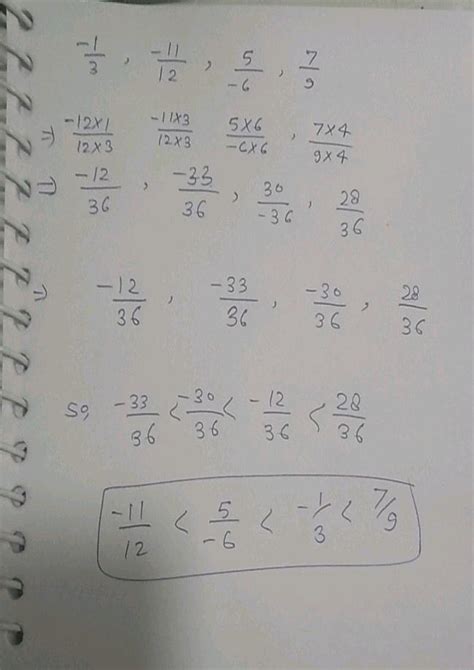 -1/3 , -11/12 , 5/-6 , 7/9
⇒ -12×1/12×3 -11×3/12×3 5×6/-6×6 , 7×4/9×4
⇒ -12/36 , -33/36 , 30/-36 , 28/36
⇒ -12/36 , -33/36 , -30/36 , 28/36
So, -33/36 < -30/36 < -12/36 < 28/36
-11/12 < 5/-6 < -1/3 < 7/9